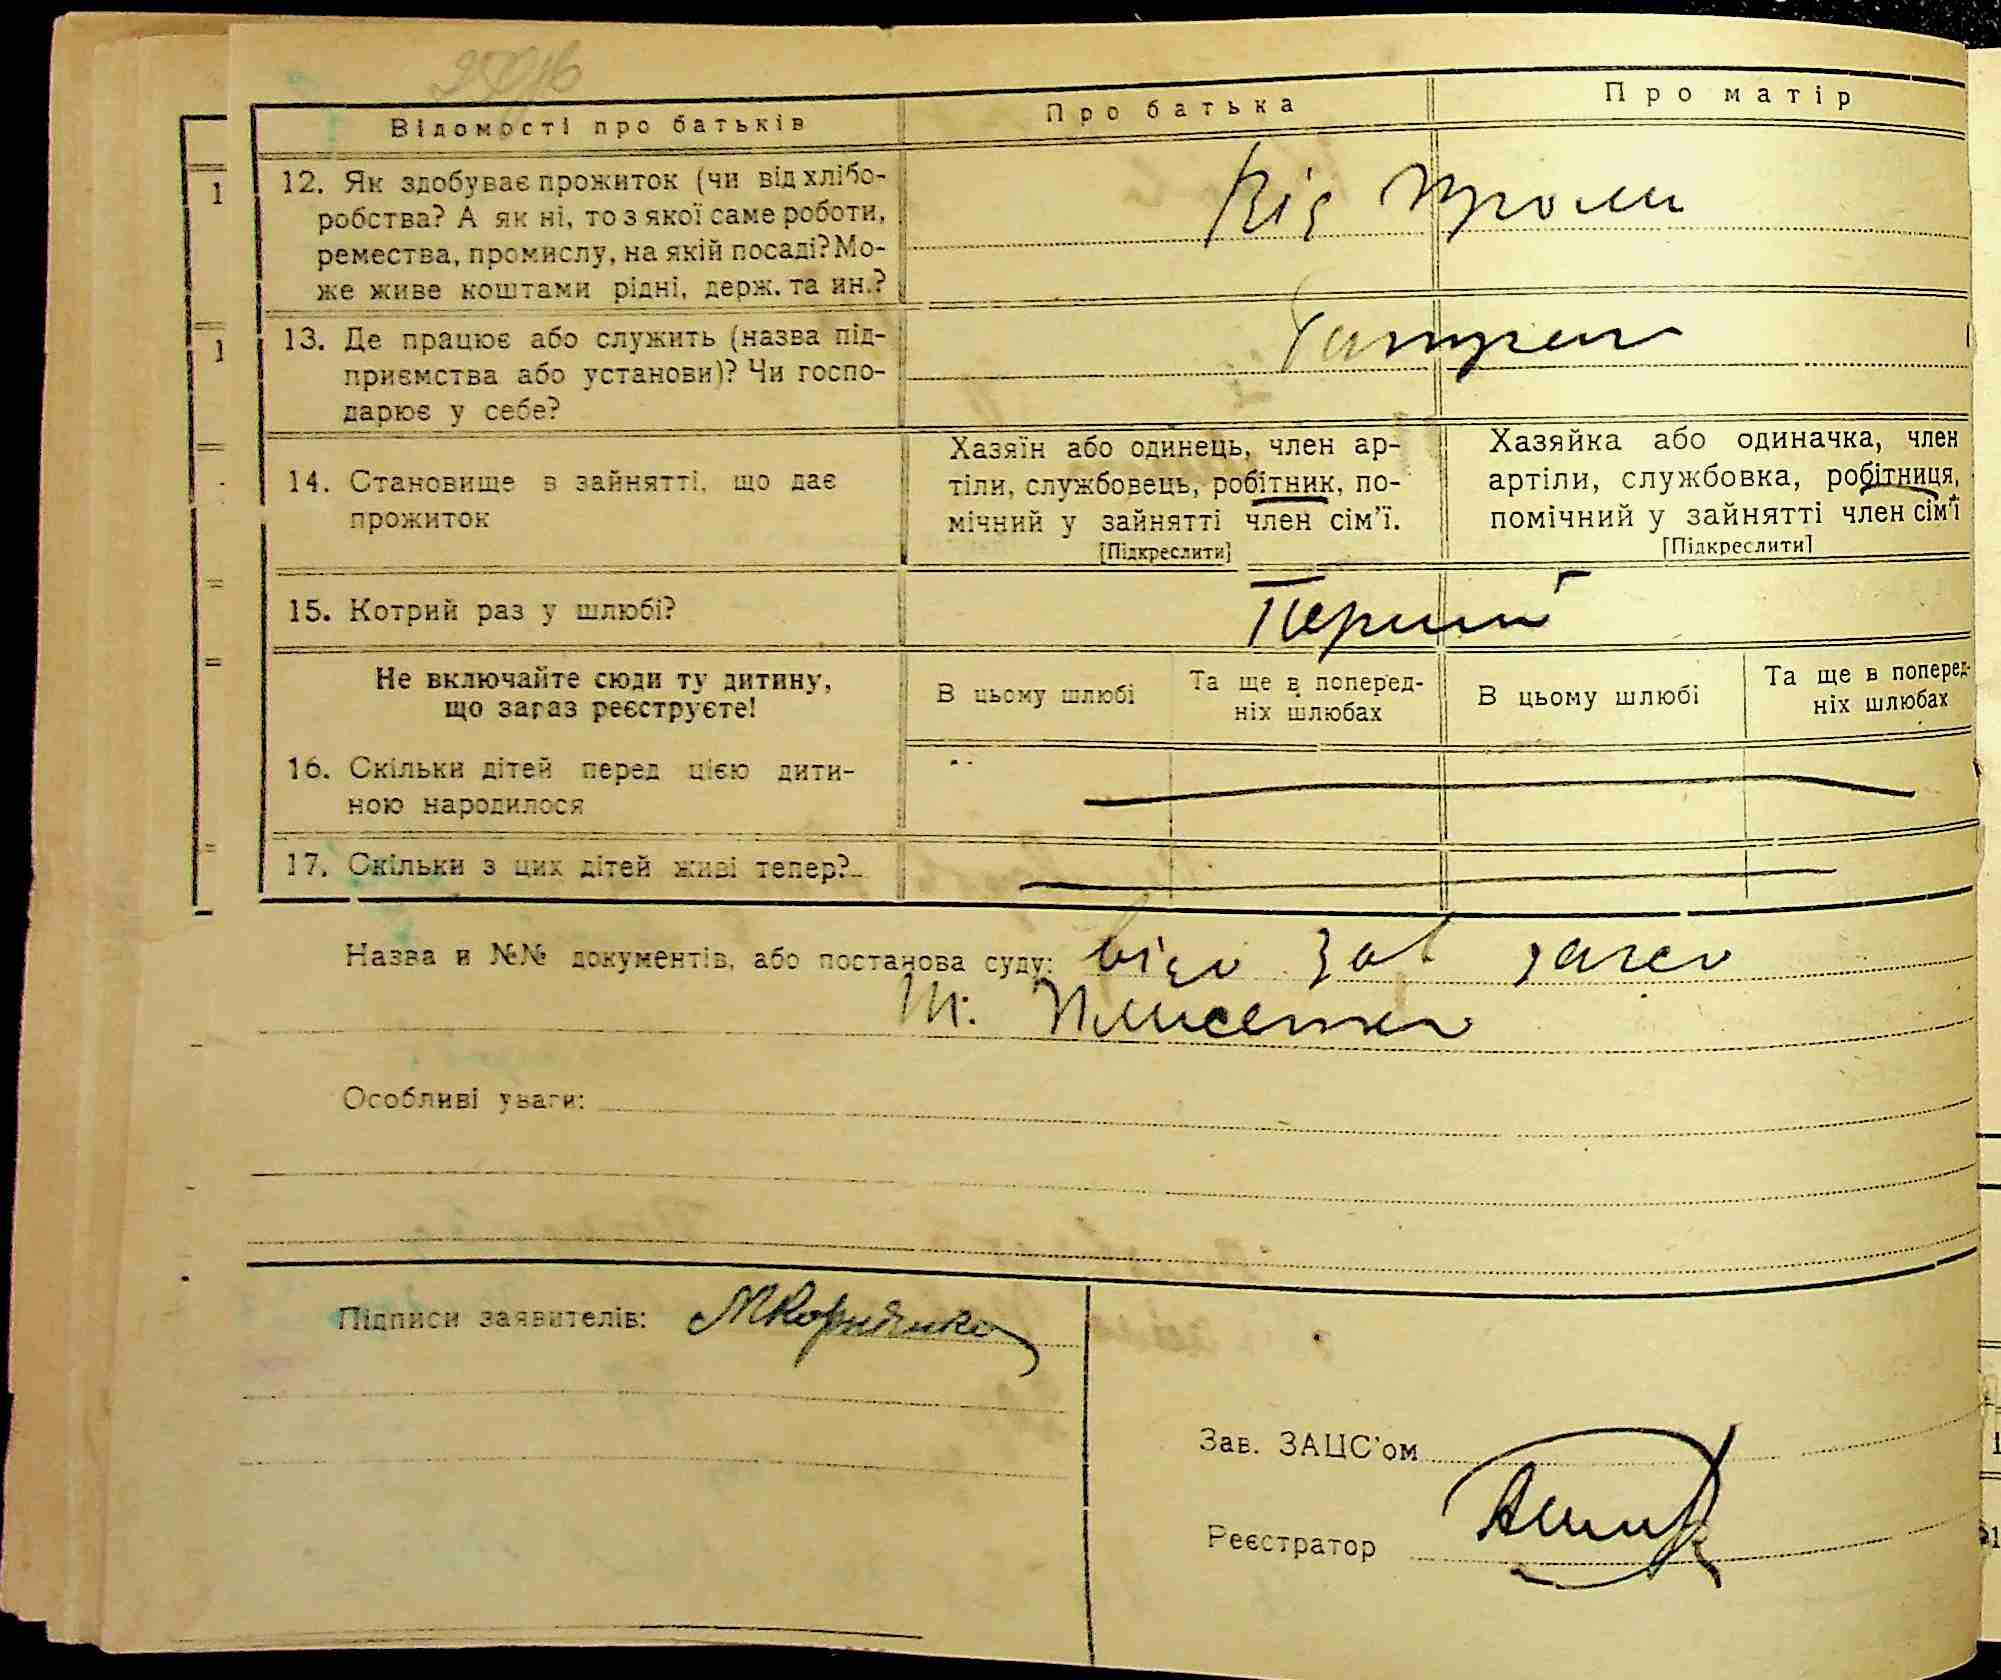 Відомості про батьків
Про батька
Про матір
12. Як здобуває прожиток (чи від хлібо-
робства? А як ні, то з якої саме роботи,
ремества, промислу, на якій посаді? Мо-
же живе коштами рідні, держ. та ин.?
Від
13. Де працює або служить (назва під-
приємства або установи)? Чи госпо-
дарює у себе?
14. Становище в зайнятті, що дає
прожиток
Хазяїн або одинець, член ар-
тіли, службовець, робітник, по-
мічний у зайнятті член сім'ї.
[Підкреслити]
Хазяйка або одиначка, член
артіли, службовка, робітниця,
помічний у зайнятті член сім'ї
[Підкреслити]
15. Котрий раз у шлюбі?
Перший
Не включайте сюди ту дитину,
що зараз реєструєте!
В цьому шлюбі
Та ще в поперед-
ніх шлюбах
В цьому шлюбі
Та ще в поперед-
ніх шлюбах
16. Скільки дітей перед цією дити-
ною народилося
17. Скільки з цих дітей живі тепер?
Назва и №№ документів, або постанова суду: зав
Особливі уваги:
Підписи заявителів:
Зав. ЗАЦС'ом
Реєстратор